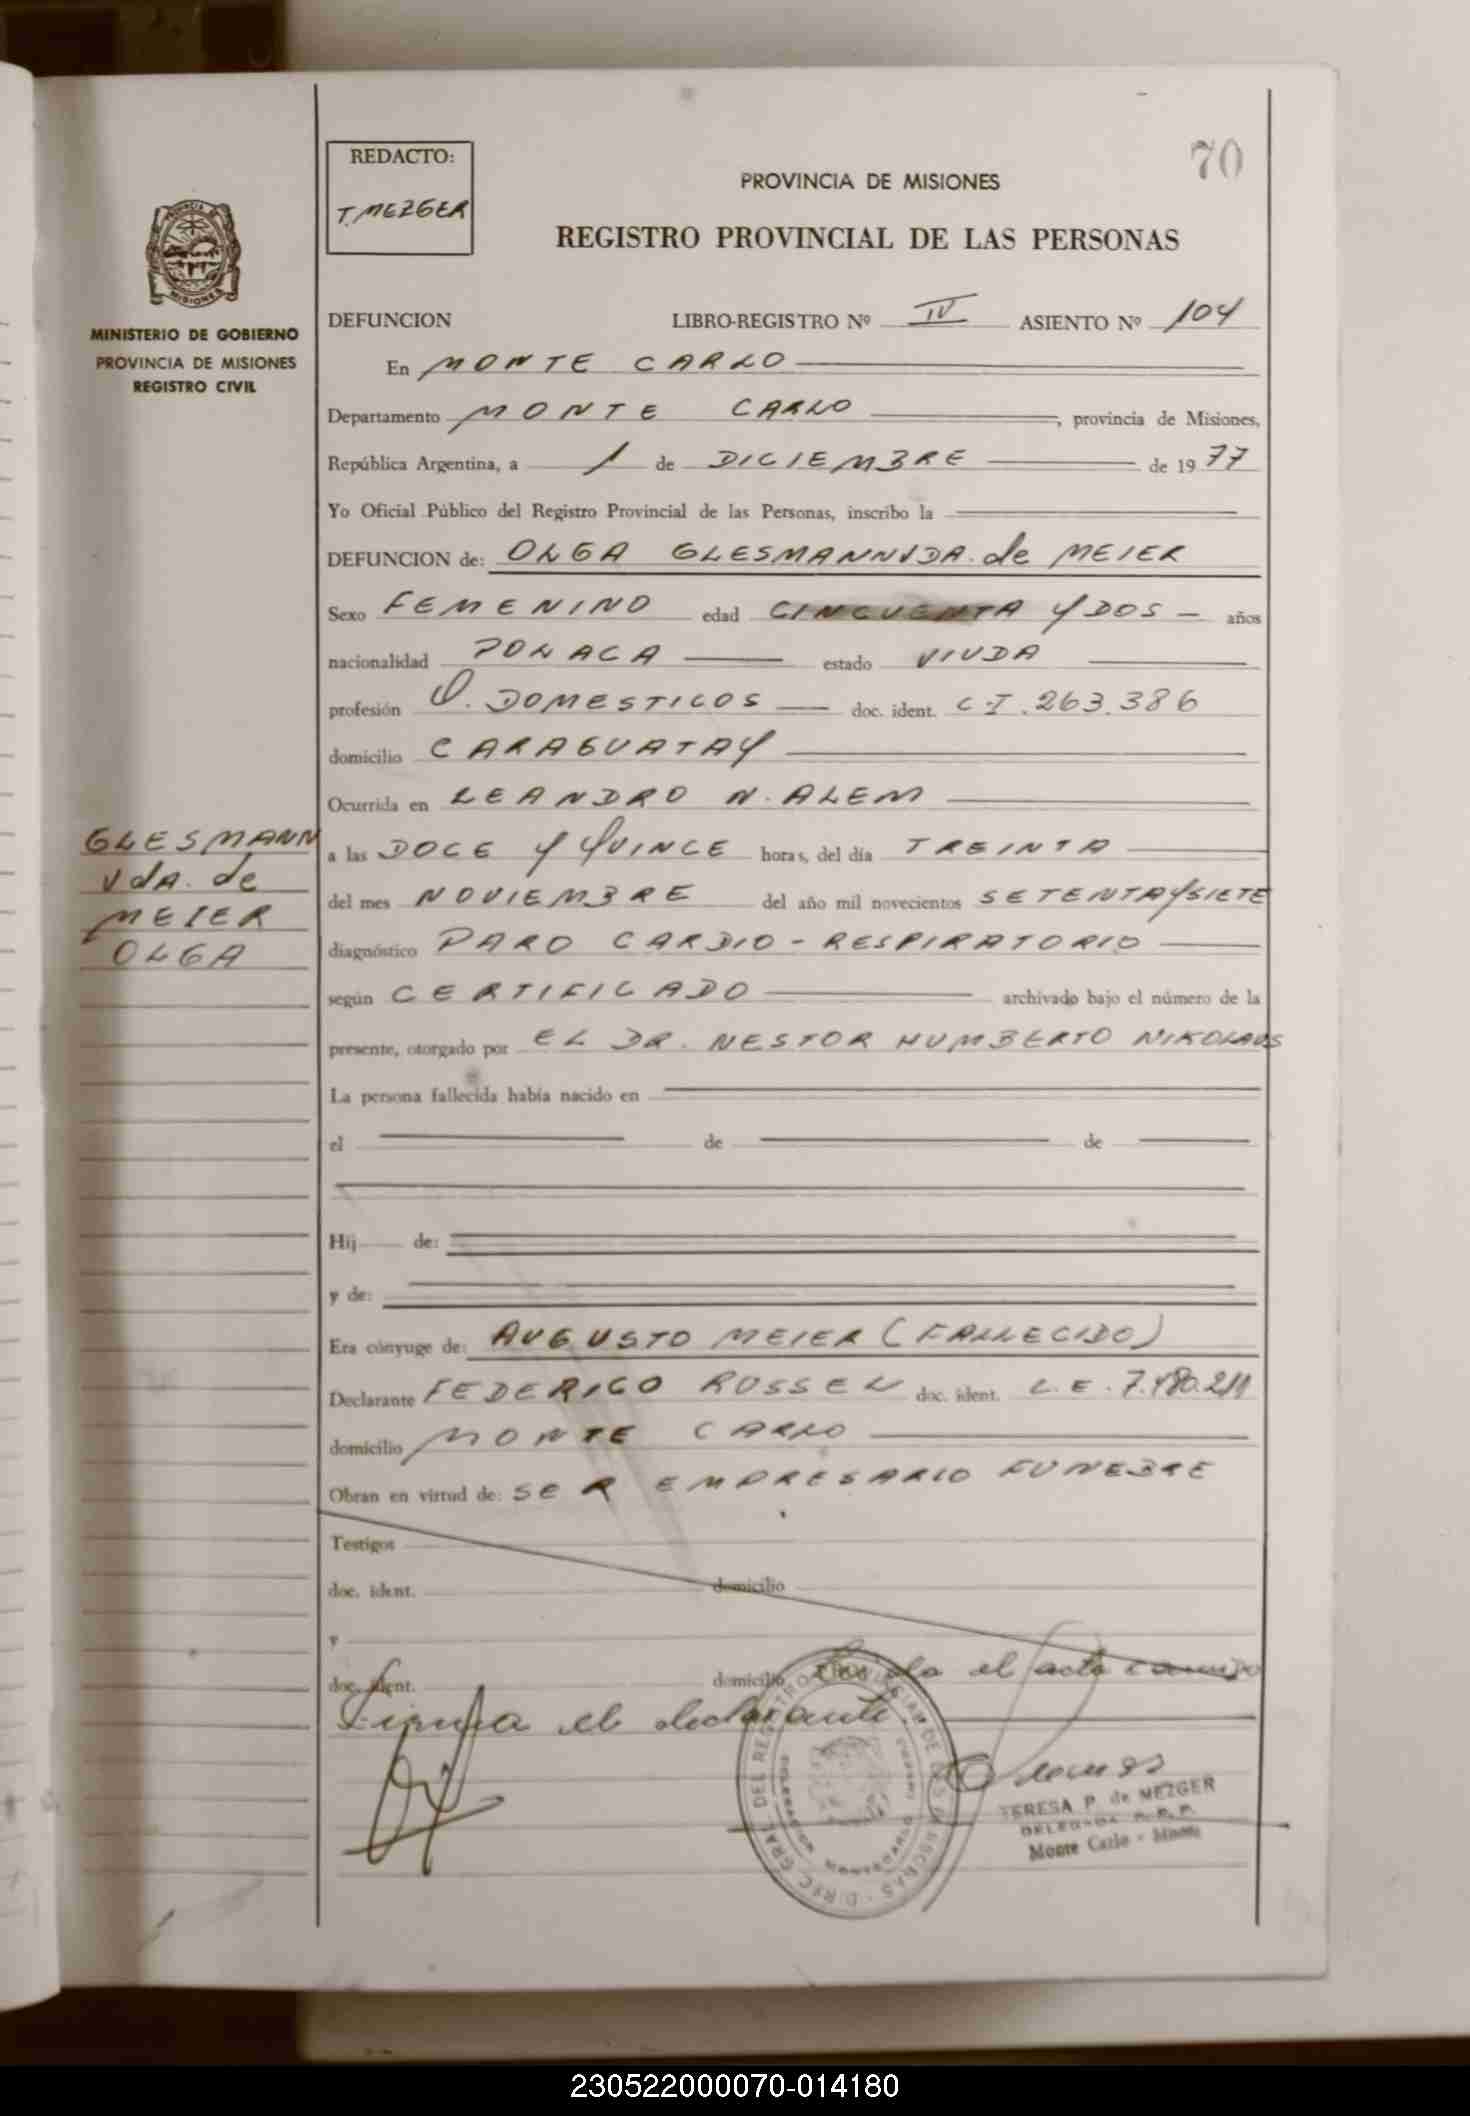 70
REDACTO:
T. MEZGER
PROVINCIA DE MISIONES
REGISTRO PROVINCIAL DE LAS PERSONAS
MINISTERIO DE GOBIERNO
PROVINCIA DE MISIONES
REGISTRO CIVIL
DEFUNCION LIBRO-REGISTRO Nº IV ASIENTO Nº 104
En MONTE CARLO
Departamento MONTE CARLO, provincia de Misiones,
República Argentina, a 1 de DICIEMBRE de 1977
Yo Oficial Público del Registro Provincial de las Personas, inscribo la
DEFUNCION de: OLGA GLESMANN VDA. de MEIER
Sexo FEMENINO edad CINCUENTA Y DOS - años
nacionalidad POLACA estado VIUDA
profesión Q. DOMESTICOS doc. ident. C.I. 263.386
domicilio CARAGUATAY
Ocurrida en LEANDRO N. ALEM
a las DOCE Y QUINCE horas, del día TREINTA
del mes NOVIEMBRE del año mil novecientos SETENTA Y SIETE
diagnóstico PARO CARDIO-RESPIRATORIO
según CERTIFICADO archivado bajo el número de la
presente, otorgado por EL DR. NESTOR HUMBERTO NIKOLAUS
La persona fallecida había nacido en
el de de
Hij de:
y de:
Era cónyuge de: AUGUSTO MEIER (FALLECIDO)
Declarante FEDERICO RUSSEL doc. ident. L.E. 7.480.211
domicilio MONTE CARLO
Obran en virtud de: SER EMPRESARIO FUNEBRE
Testigos
doc. ident. domicilio
y
doc. ident. domicilio el acta
Firma el declarante
GLESMANN
Vda. de
MEIER
OLGA
TERESA P. de MEZGER
DELEGADA R. P. P.
Monte Carlo - Mnes
230522000070-014180